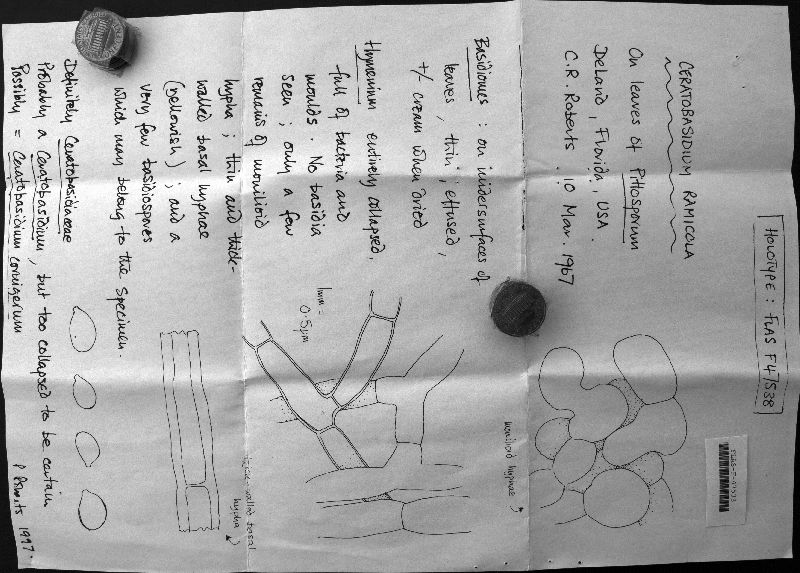 HOLOTYPE: FLAS F47538
CERATOBASIDIUM RAMICOLA
On leaves of Pittosporum
Deland, Florida, USA.
C.R. Roberts. 10 Mar. 1967
Basidiomes: on undersurfaces of
leaves, thin, effused,
+/- cream when dried
Hymenium entirely collapsed,
full of bacteria and
moulds. No basidia
seen; only a few
remains of monilioid
hypha; thin and thick-
walled basal hyphae
(yellowish); and a
very few basidiospores
which may belong to the specimen.
Definitely Ceratobasidiaceae
Probably a Ceratobasidium, but too collapsed to be certain
Possibly = Ceratobasidium cornigerum
P Roberts 1997.
monilioid hyphae
1mm =
0.5µm
thick-walled basal
hypha